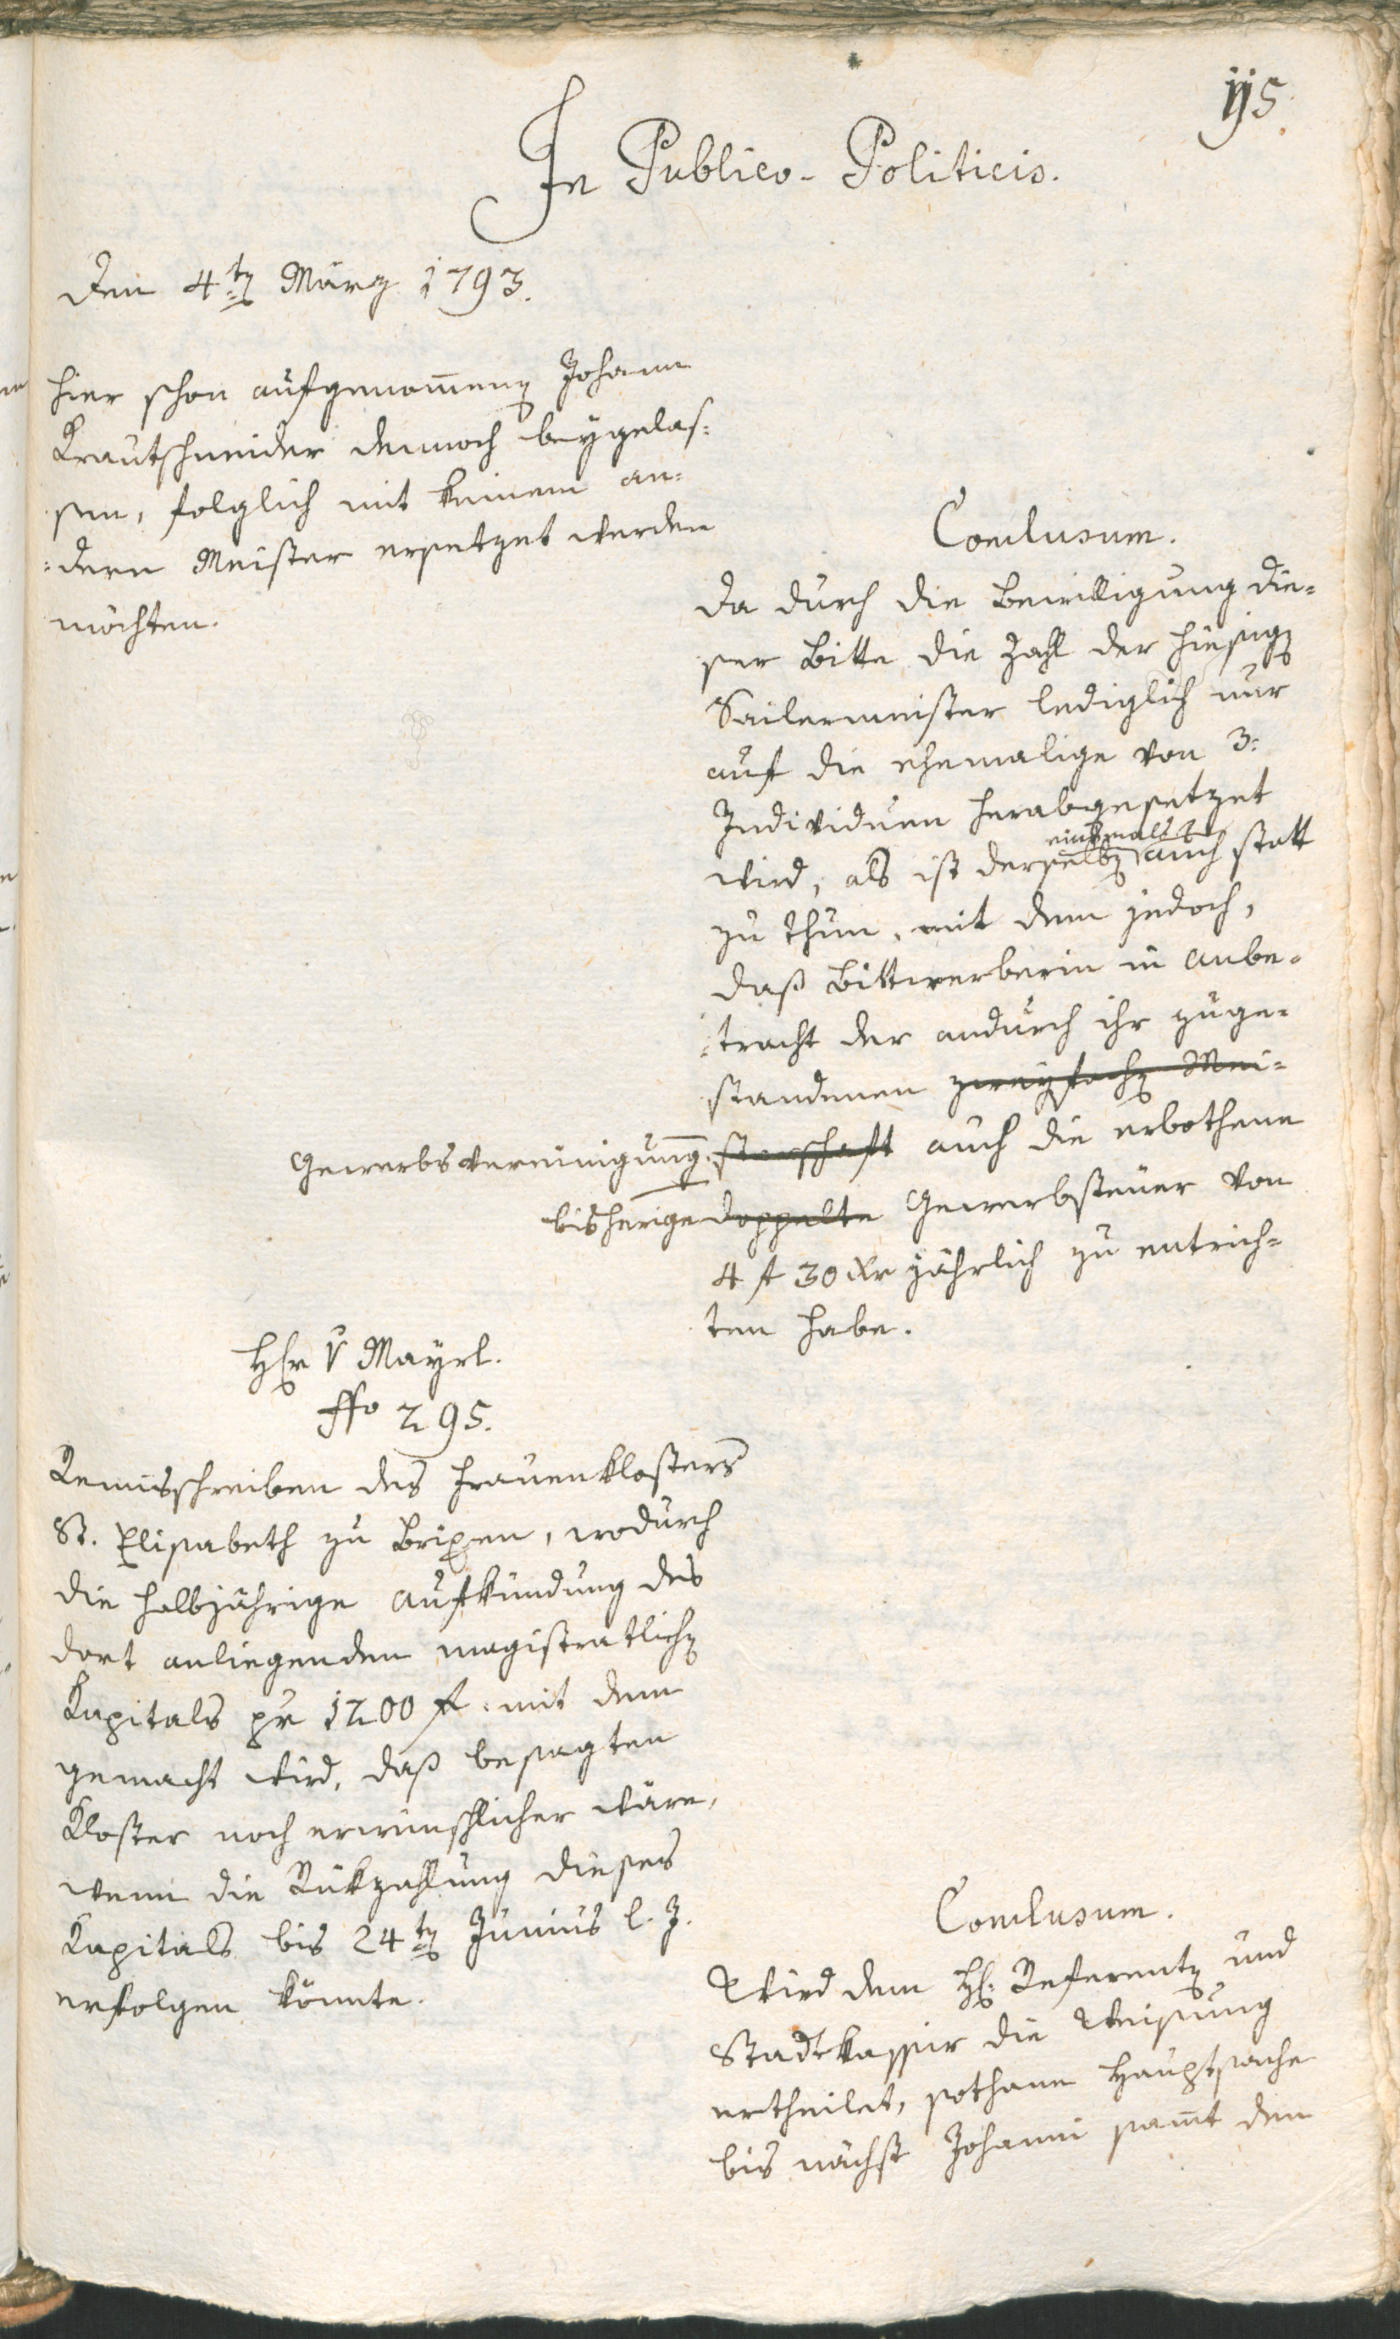 115.
In Publico-Politicis.
den 4ten März 1793.
hier schon aufgenommenen Johann
Krautschneider dennoch beygelas¬
sen, folglich mit keinem an¬
dern Meister ersetzet werden
möchten.
Conclusum.
Da durch die Bewilligung die¬
ser Bitte die Zahl der hiesigen
Seilermeister lediglich nur
auf die ehemalige von 3.
Individuen herabgesetzet
einsmals
wird, als ist derselben auch statt
zu thun, mit dem jedoch,
daß Bittwerberin in Anbe¬
tracht der andurch ihr zuge¬
standenen zweyfachen Mei¬
Gewerbsvereinigung sterschaft auch die erbothene
bisherige doppelte Gewerbsteuer von
4 f 30 Xr jährlich zu entrich¬
ten habe.
Hr v Mayrl.
Nro 295.
Remisschreiben des Frauenklosters
St. Elisabeth zu Brixen, wodurch
die halbjährige Aufkündung des
dort anliegenden magistratlichen
Kapitals pr 1200 f. mit dem
gemacht wird, daß besagten
Kloster noch erwünschlicher wäre,
wenn die Rükzahlung dieses
Kapitals bis 24ten Junius l. J.
erfolgen könnte.
Conclusum.
Wird dem H. Referenten und
Stadtkassier die Weisung
ertheilet, sothane Hauptsache
bis nächst Johanni sammt den